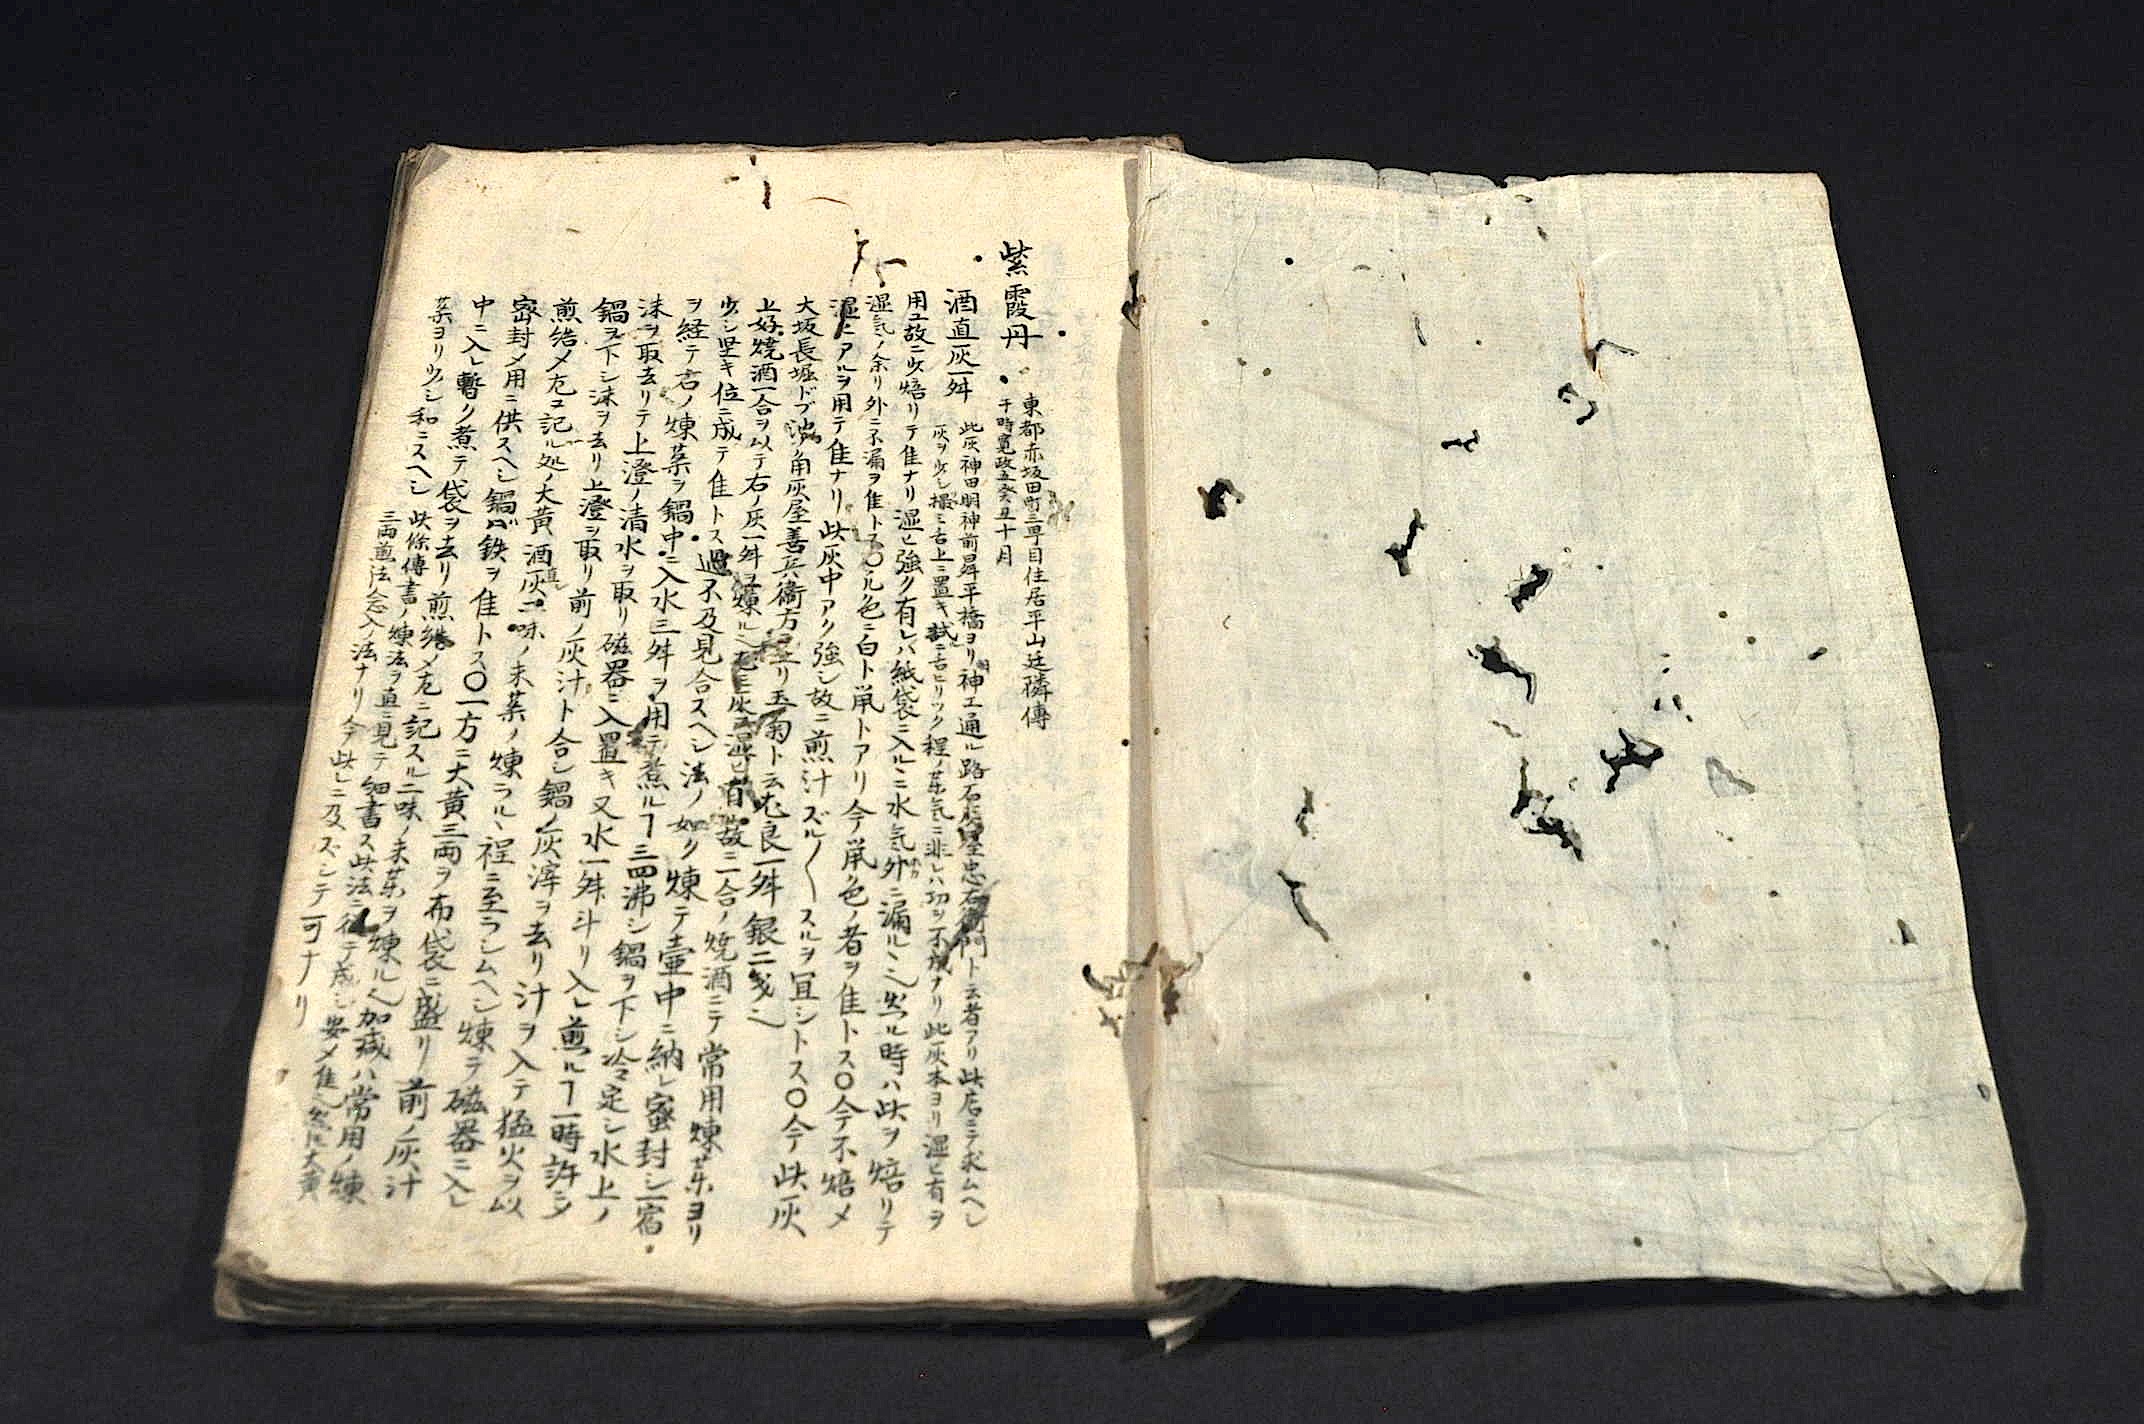 紫霞丹
東都赤坂田町三早目住居平山廷隣傳
于時寛政五癸丑十月
酒直灰一舛
此灰神田明神前昇平橋ヨリ神エ通ル路石灰屋忠右衛門ト云者アリ此店ニテ求ムヘシ
灰ヲ少シ撮ミ舌上ニ置キ試ニ舌ヒリツク程ノ茱気ニ非レハ功ヲ不成ナリ此灰本ヨリ湿ヒ有ヲ
用ユ故ニ少焙リテ隹ナリ湿ヒ強ク有レハ紙袋ニ入ルニ水気外ニ漏ル
時ハ此ヲ焙リテ
湿気ノ余リ外ニ不漏ヲ隹トス〇ル色ニ白ト鼠トアリ今鼠色ノ者ヲ隹トス〇今不焙メ
湿ヒアルヲ用テ隹ナリ此灰中アク強シ故ニ煎汁ズル〱スルヲ宜シトス〇今此灰
大坂長堀ドブ池角灰屋善兵衛方
ヨリ玉菊ト云
良一舛銀二匁
上好焼酒一合ヲ以テ右ノ灰一舛ヲ煉ル
灰ニ湿ヒ有故ニ二合ノ焼酒ニテ常用煉茱ヨリ
少シ堅キ位ニ成テ隹トス過不及見合スヘシ法ノ如ク煉テ壷中ニ納レ蜜封シ一宿
ヲ経テ右ノ煉茱ヲ鍋中ニ入水三舛ヲ用テ煮ルヿ三四沸シ鍋ヲ下シ冷定シ水上ノ
沫ヲ取去リテ上澄ノ清水ヲ取リ磁器ニ入置キ又水一舛斗リ入レ煎ルヿ一時許ニシテ
鍋ヲ下シ沫ヲ去リ上澄ヲ取リ前ノ灰汁ト合シ鍋ノ灰滓ヲ去リ汁ヲ入テ猛火ヲ以
煎詰メ左ニ記ル処ノ大黄酒直灰二味ノ末茱ノ煉ラルヽ程ニ至ラシムヘシ煉テ磁器ニ入レ
密封メ用ニ供スヘシ鍋ハ鉄ヲ隹トス〇一方ニ大黄三両ヲ布袋ニ盛リ前ノ灰汁
中ニ入レ暫ク煮テ袋ヲ去リ煎詰メ左ニ記スル二味ノ末茱ヲ煉ル
加減ハ常用ノ煉
茱ヨリ少シ和ニスヘシ
此條傳書ノ煉法ヲ直ニ見テ細書ス此法ニ従テ成シ
大黄
三両煎法念入ノ法ナリ今此レニ及ズシテ可ナリ